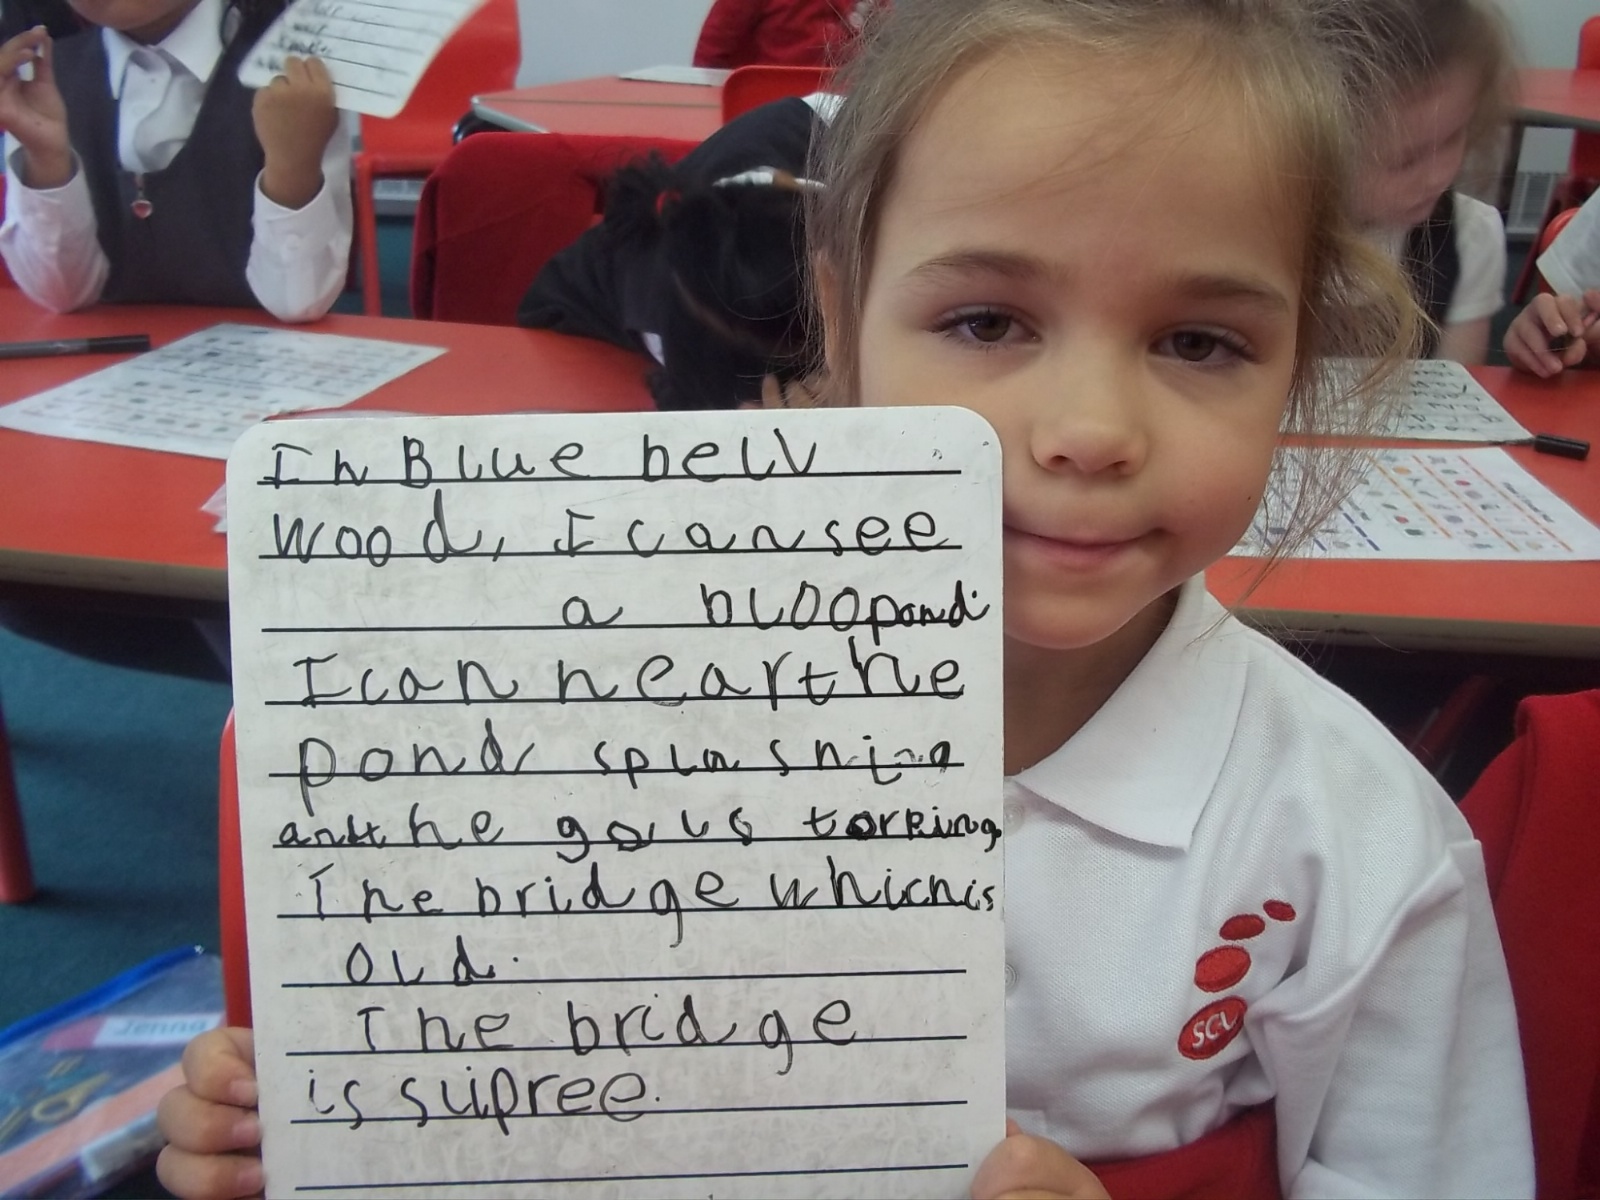 In Blue bell
wood, I can see
a bloo pond
I can hear the
pond splashing
and the gowls torking
The bridge which is
old.
The bridge
is slipree.
SCL